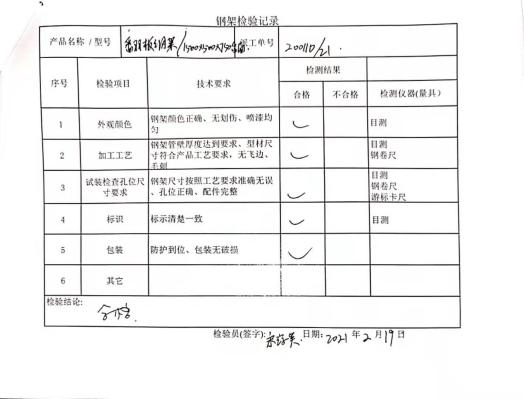 钢架检验记录
产品名称 / 型号 /1500X1500X750 派工单号 200110/21
序号 检验项目 技术要求 检测结果
合格 不合格 检测仪器(量具)
1 外观颜色 钢架颜色正确、无划伤、喷漆均匀 ✓ 目测
2 加工工艺 钢架管壁厚度达到要求、型材尺寸符合产品工艺要求，无飞边、毛刺 ✓ 目测 钢卷尺
3 试装检查孔位尺寸要求 钢架尺寸按照工艺要求准确无误、孔位正确、配件完整 ✓ 目测 钢卷尺 游标卡尺
4 标识 标示清楚一致 ✓ 目测
5 包装 防护到位、包装无破损 ✓
6 其它
检验结论:
合格
检验员(签字): 日期: 2021 年 2 月 19 日